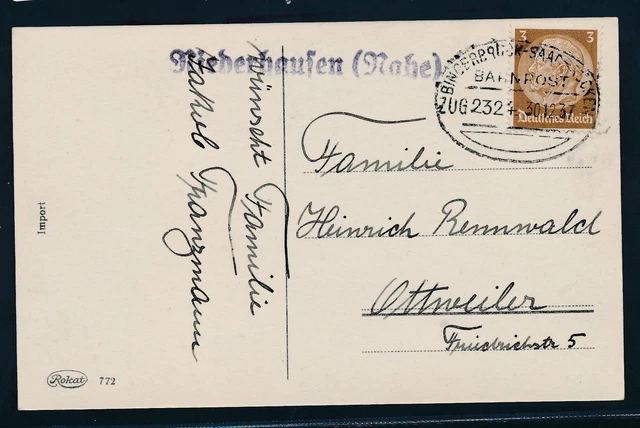 Niederhausen (Nahe)
BINGERBRÜCK-SAARBRÜCKEN
BAHNPOST
ZUG 2324 30.12.37
3 3
Deutsches Reich
wünscht Familie
Jakob Franzmann
Familie
Heinrich Rennwald
Ottweiler
Friedrichstr 5
Import
Rokat 772